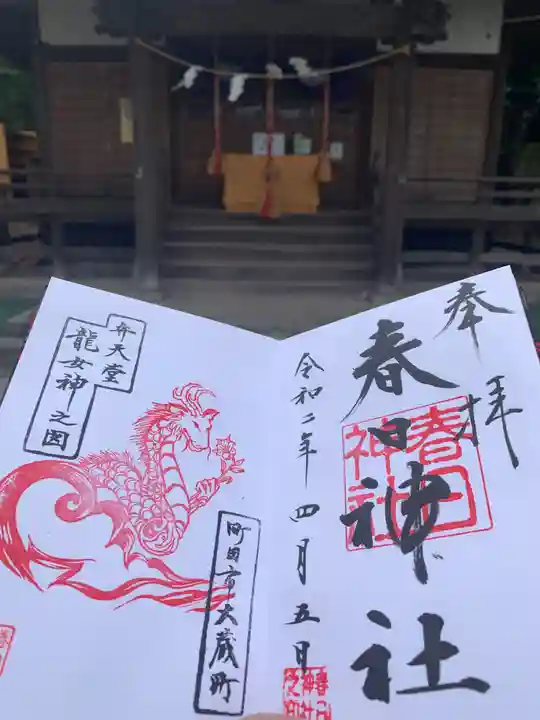 奉拝
春日神社
春日
神社
令和二年四月五日
春日
神社
之印
弁天堂
龍女神之図
町田市大蔵町